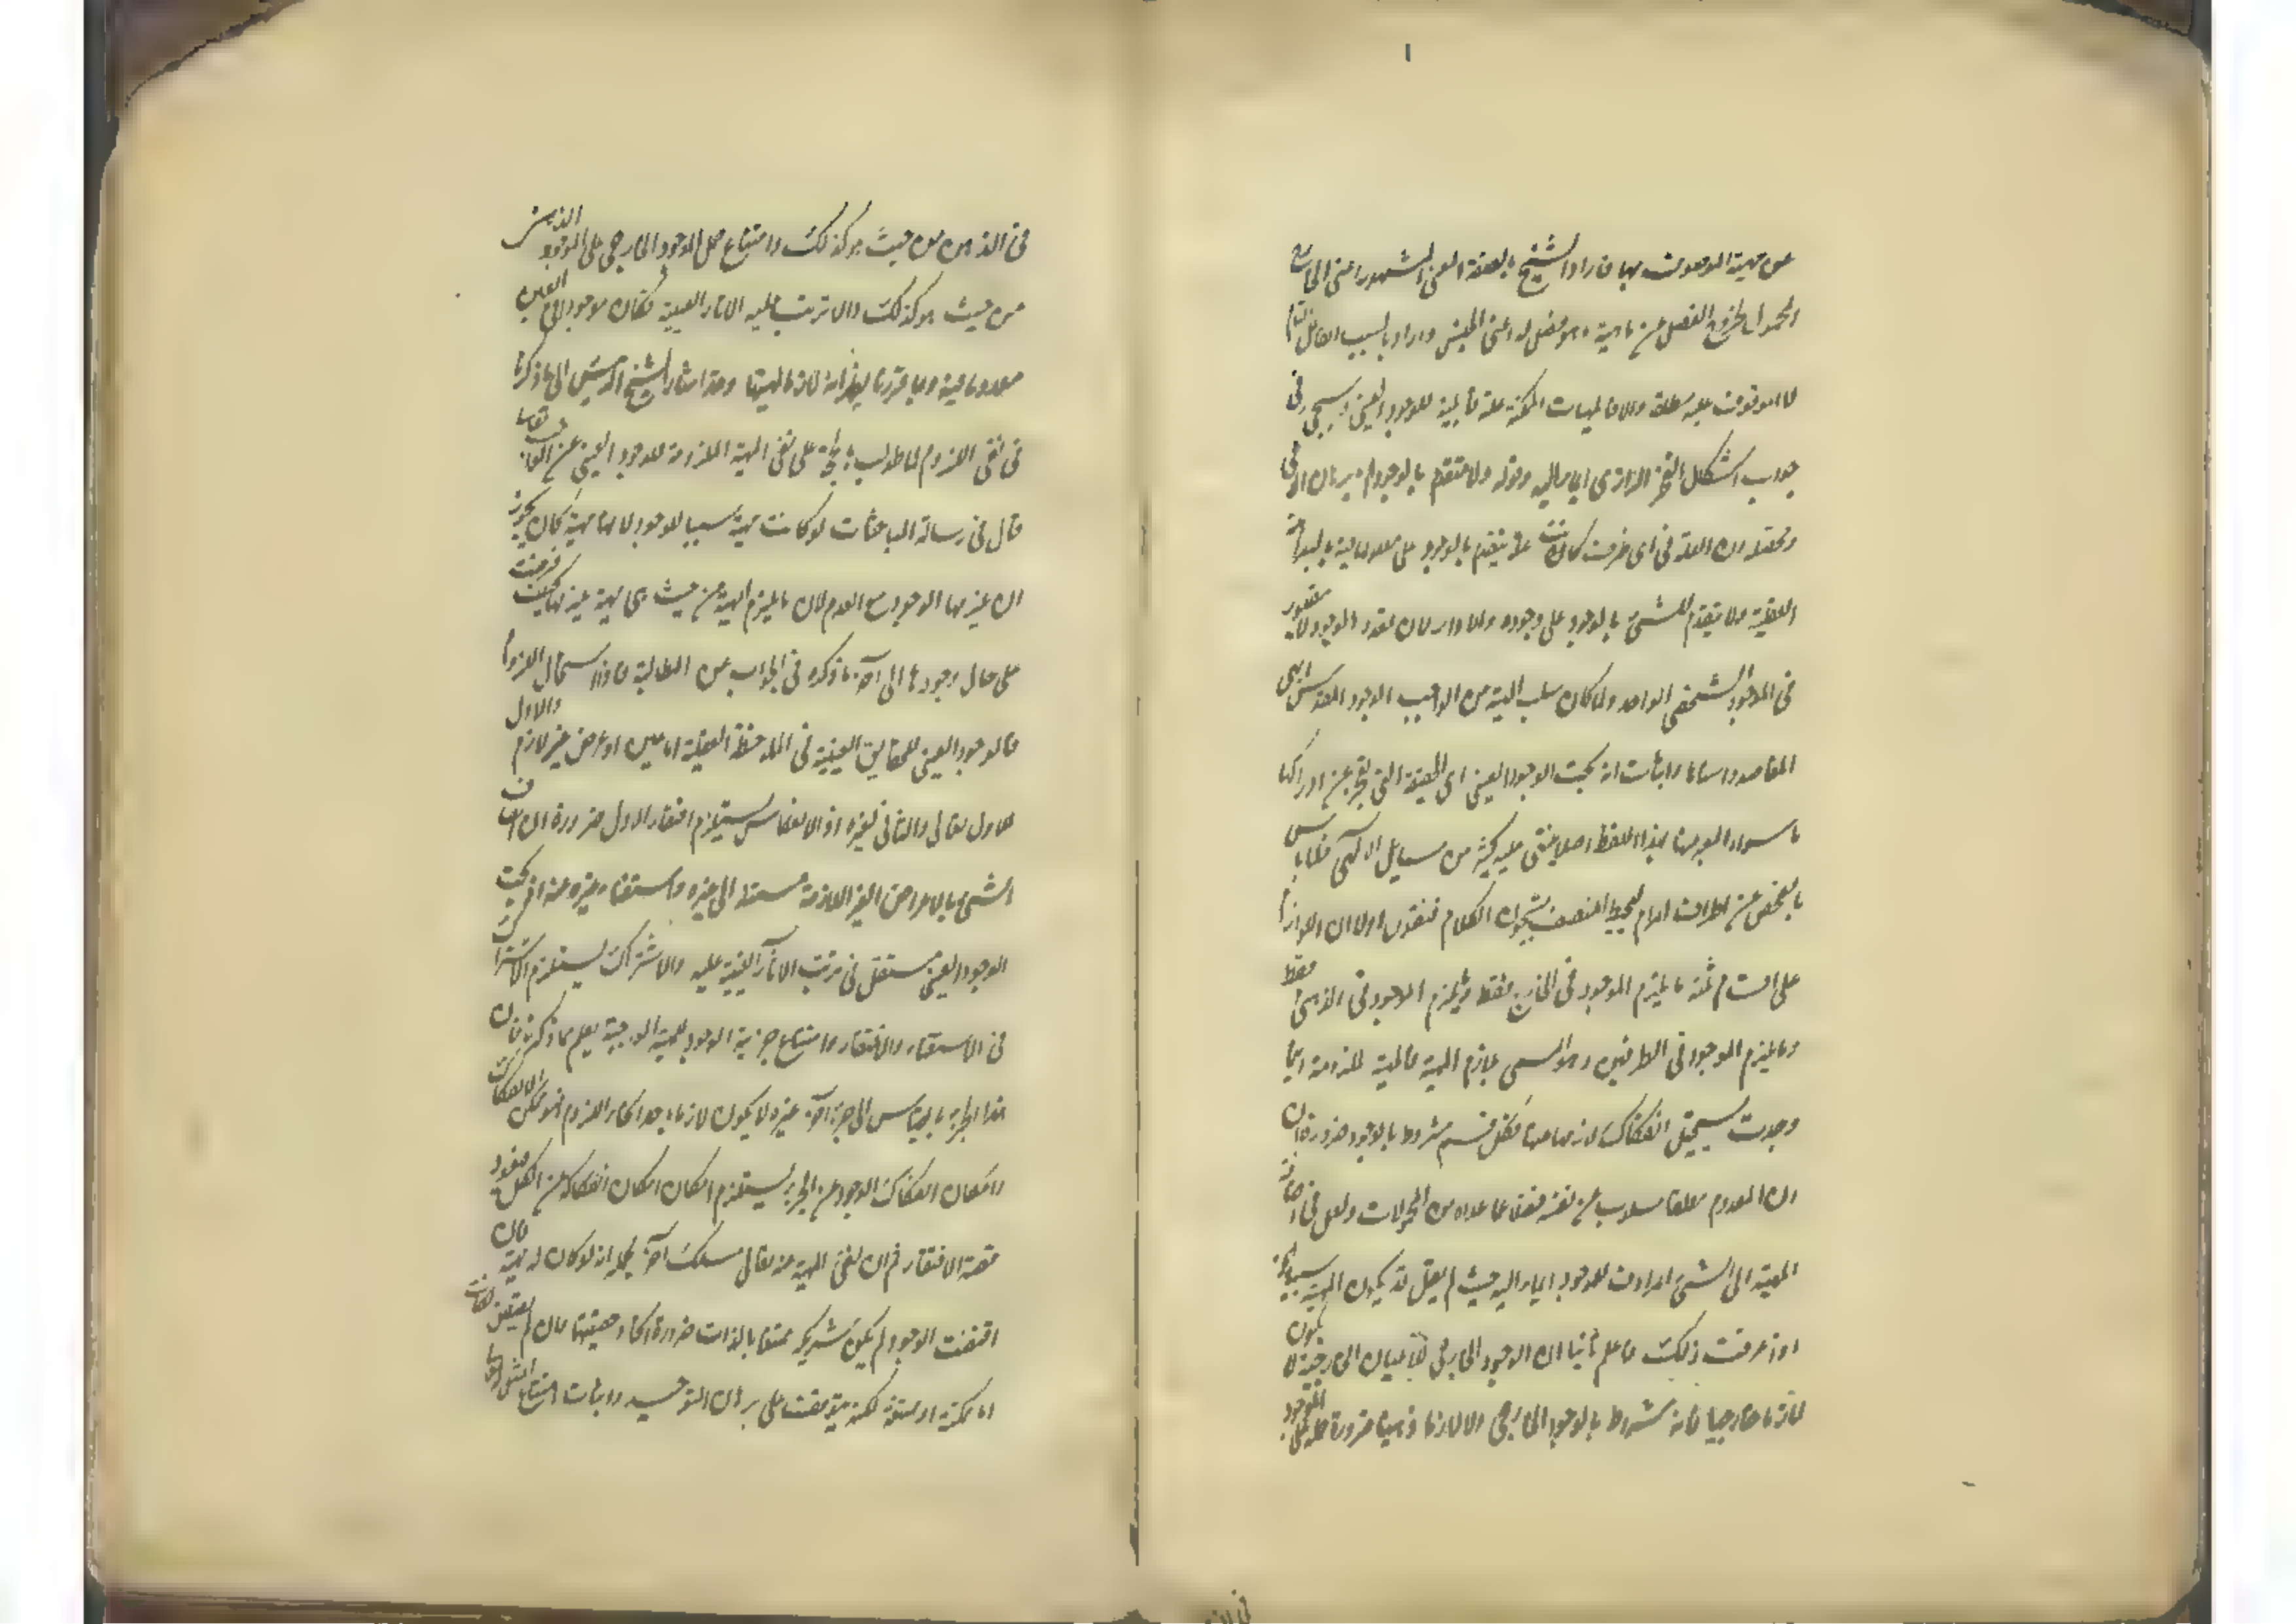 عن مهية الموصوف بها فاراد الشيخ بالصفة المعنى المشهور اعنى الخارج
المحمول لخروج الفصل عن ماهية هو فصل له اعنى الجنس واراد بالسبب الفاعل التام
لا الموقوف عليه مطلقا والا فالمهيات الممكنة علة قابلية للوجود العينى وسيجئ فى
جواب اشكال الفخر الرازى ايماء اليه وقوله ولا متقدم بالوجود
ان العلة فى اى ظرف كانت علة يتقدم بالوجود على معلولها فيه بالبداهة
العقلية ولا يتقدم الشئ بالوجود على وجوده والا دار لان تعدد الوجود لا يتصور
فى الموجود الشخصى الواحد ولما كان سلب المهية من الواجب الوجود المقدس ابهى
المقاصد واسناها واثبات انه بحت الوجود العينى اى الحقيقة التى يعجز عن ادراكها
ما سواه المعبر عنها بهذا اللفظ اصلا يبتنى عليه كثير من مسايل الالهى فلا باس
بالفحص عن اطراف المرام ليحيط المنصف الكلام فنقول اولا ان اللوازم
على اقسام ثلثة ما يلزم الموجود فى الخارج فقط وما يلزم الموجود فى الذهن فقط
وما يلزم الموجود فى الطرفين وهو المسمى بلازم المهية فالمهية الملزومة اينما
وجدت يستحيل انفكاك لازمها عنها فكل قسم مشروط بالوجود ضرورة ان
ان المعدوم مطلقا مسلوب عن نفسه فضلا عما عداه من المحمولات ولعل فى اضافة
المعية الى الشئ المرادف للموجود ايماء اليه حيث لم يقل قد يكون المهية سببا
اذا عرفت ذلك فاعلم ثانيا ان الوجود الخارجى للاعيان الخارجية لا يكون
لازما خارجيا فانه مشروط بالوجود الخارجى ولا لازما ذهنيا ضرورة حمله على الموجود
فى الذهن من حيث هو كذلك وامتناع حمل الوجود الخارجى على الموجود الذهنى
من حيث هو كذلك والا ترتب عليه الآثار العينية فكان موجودا فى العين
معدوما فيه ومما قررنا يظهر انه لازما لمهيتها وقد اشار الشيخ الرئيس الى ما ذكرنا
فى نفى اللزوم لما طولب بالحجة على نفى المهية الملزومة للوجود العينى عن الواجب تعالى
قال فى رسالة المباحثات لو كانت مهية سببا للوجود لانها مهية لكان يجوز
ان يلزمها الوجود مع العدم لان ما يلزم المهية من حيث هى مهية يلزمها كيف فرضت
على حال وجودها الى آخر ما ذكره فى الجواب عن المطالبة فاذا استحال اللزوم
فالوجود العينى للحقايق العينية فى الملاحظة العقلية اما عين او عرض غير لازم والاول
للاول تعالى والثانى لغيره اذ الانعكاس يستلزم افتقار الاول ضرورة ان اتصاف
الشئ بالاعراض الغير اللازمة مستند الى غيره واستغناء غيره عنه اذ بحت
الوجود العينى مستقل فى ترتب الآثار العينية عليه والاشتراك يستلزم الاشتراك
فى الاستغناء والافتقار وامتناع جزئية الوجود للمهية الواجبة يعلم مما ذكرنا فان
هذا الجزء بالقياس الى جزء آخر غيره لا يكون لازما بعد انكار اللزوم فهو ممكن الانفكاك
وامكان انفكاك الوجود عن الجزء يستلزم امكان انفكاكه عن الكل فيعود
قصة الافتقار ثم ان لنفى المهية عنه تعالى مسلك آخر انه لو كان له مهية فان
اقتضت الوجود لم يكن شريكه ممتنعا بالذات ضرورة اتحاد حقيقتهما فان لم يقتض لكانت
اما ممكنة او ممتنعة لكنه يتوقف على برهان التوحيد واثبات امتناع